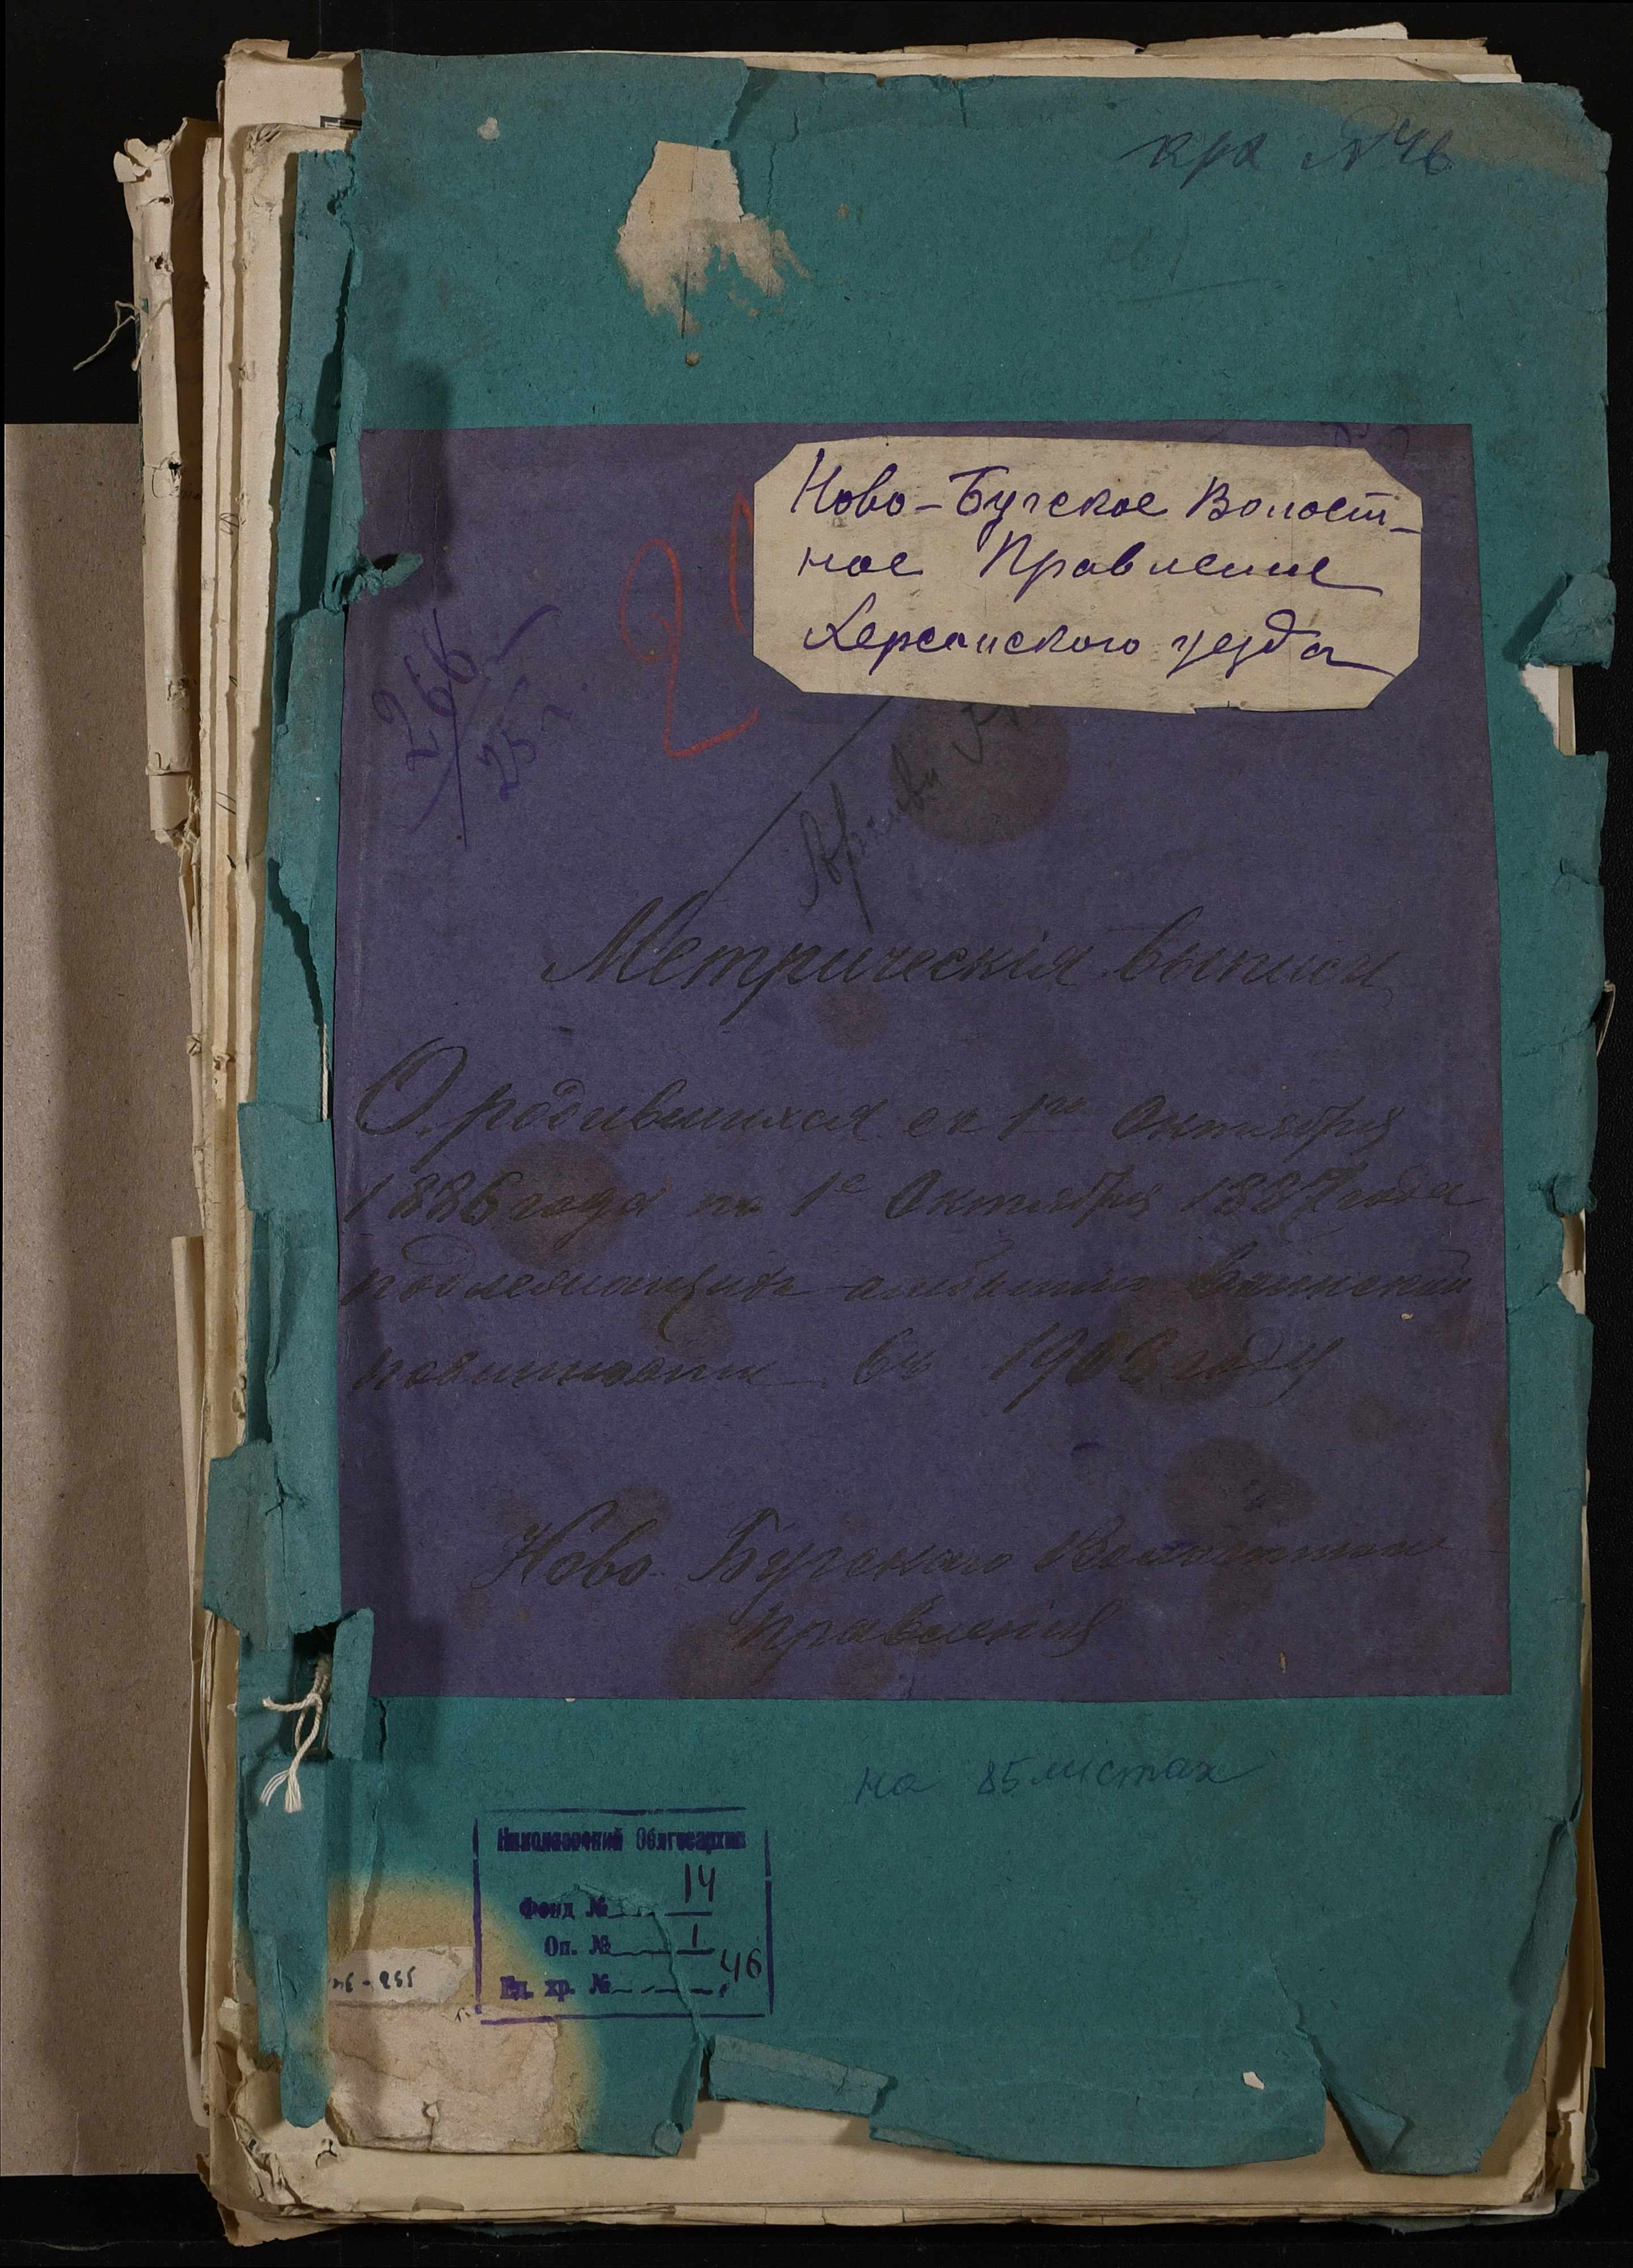 крх №46
Ново-Бугское Волост-
ное Правление
Херсонского уезда
266
25
2
Архивн
Метрическія выписи
О родившихся съ 1го Октября
1886 года по 1е Октября 1887 года
подлежащихъ отбытію воинской
повинности въ 1908 году
Ново-Бугскаго Волостного
Правленія
на 85 листах
Николаевский Облгосархив
Фонд № 14
Оп. № 1
Ед. хр. № 46